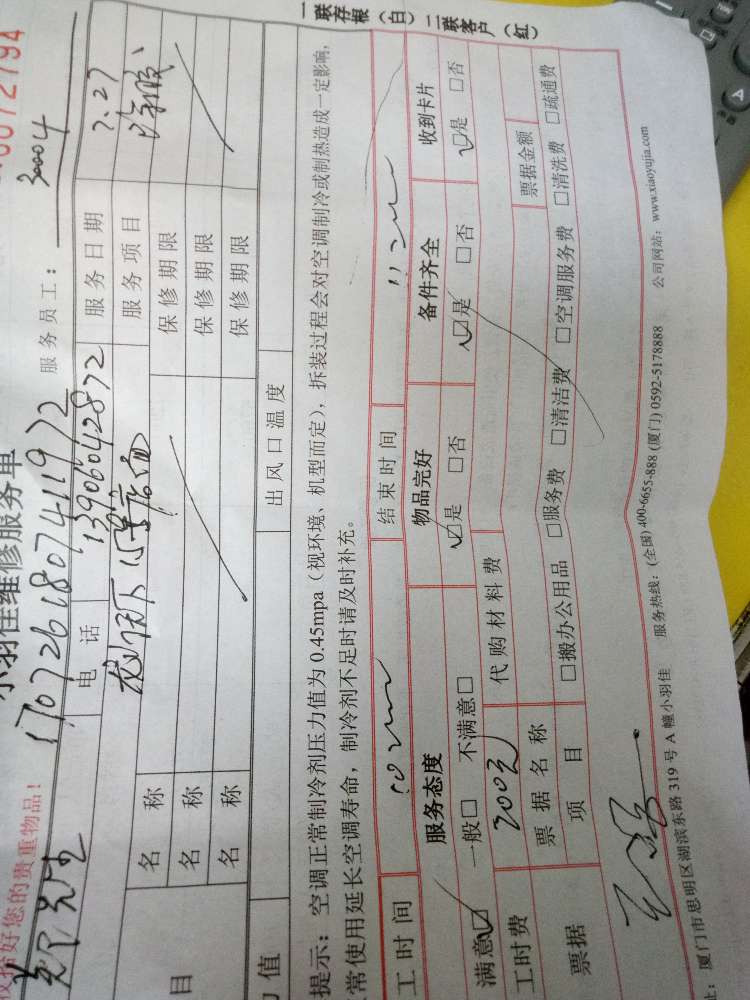 小羽佳维修服务单
管好您的贵重物品！ 1707261807411972 服务员工：30004
郑先生 电话 13906042872 服务日期 7.27
服务项目
名称 保修期限
目 名称 保修期限
名称 保修期限
力值 出风口温度
提示：空调正常制冷剂压力值为 0.45mpa（视环境、机型而定），拆装过程会对空调制冷或制热造成一定影响，
常使用延长空调寿命，制冷剂不足时请及时补充。
工时间 结束时间
服务态度 物品完好 备件齐全 收到卡片
满意☑ 一般□ 不满意□ ☑是 □否 ☑是 □否 ☑是 □否
工时费 200元 代购材料费
票据 票据名称 票据金额
项目 □搬办公用品 □服务费 □清洁费 □空调服务费 □清洗费 □疏通费
：厦门市思明区湖滨东路 319 号 A 幢小羽佳 服务热线：(全国) 400-6655-888 (厦门) 0592-5178888 公司网站：www.xiaoyujia.com
一联存根（白）二联客户（红）